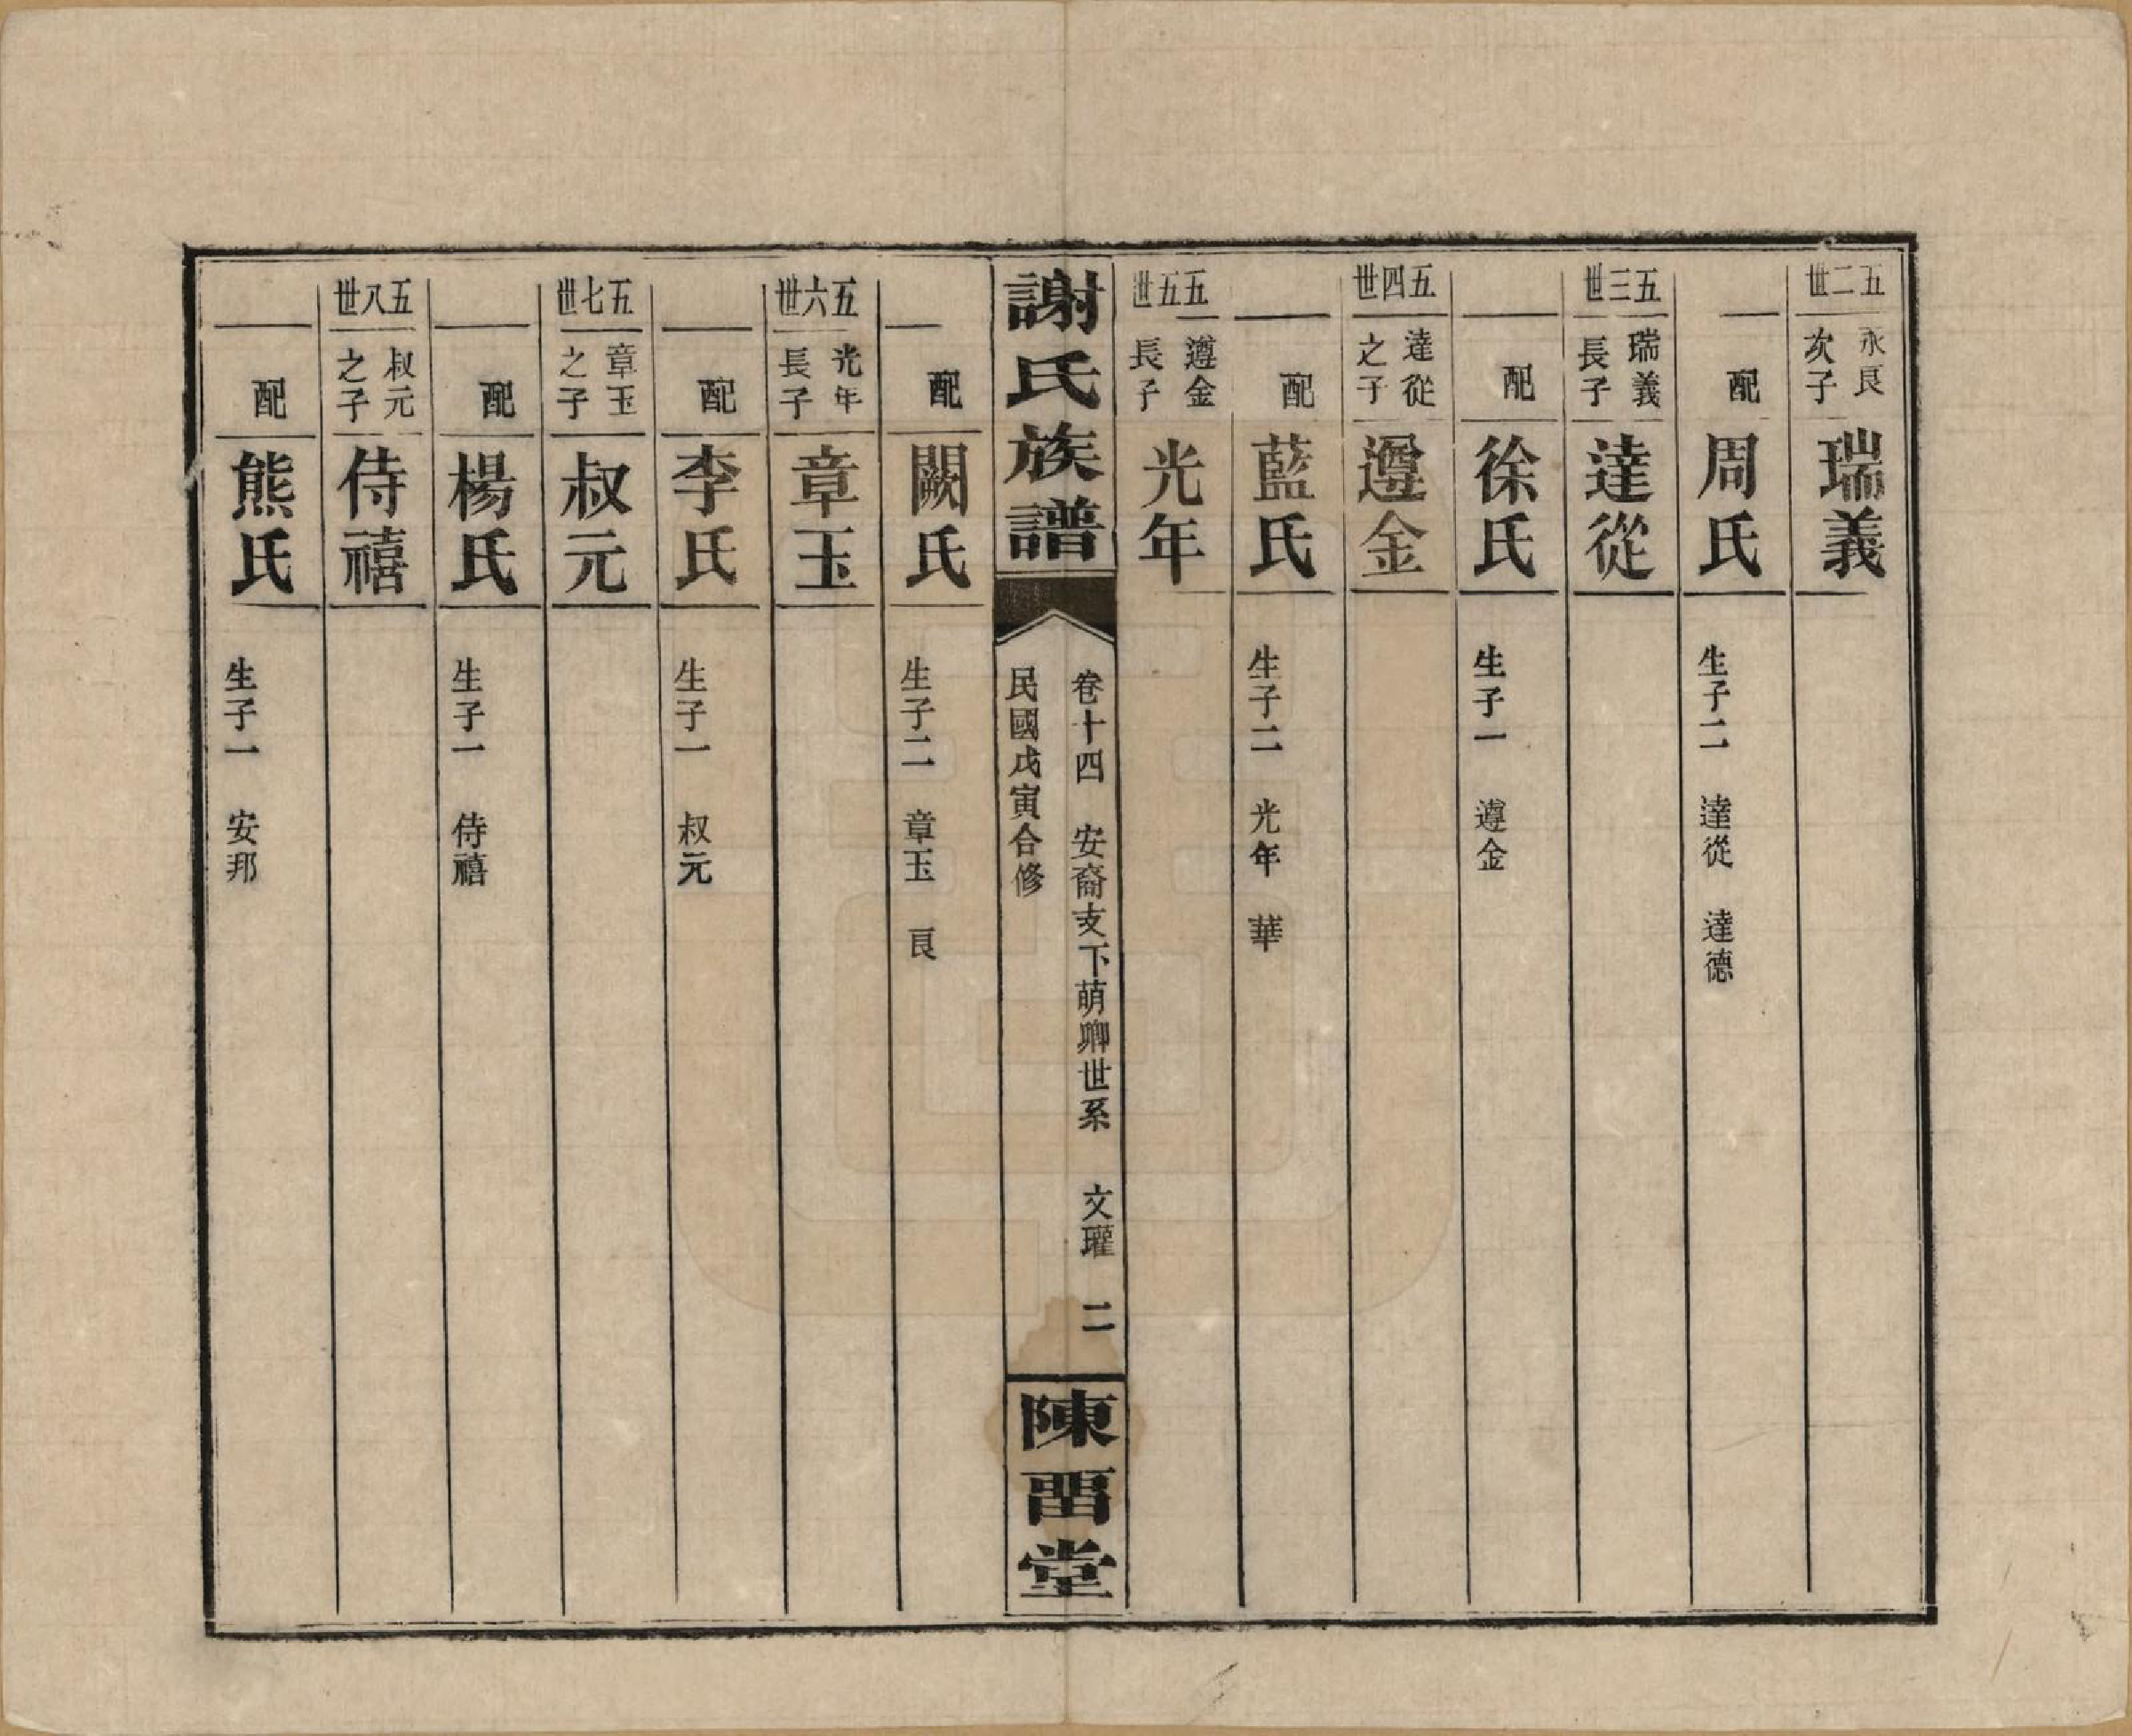 五二世 永良次子 瑞義
配 周氏 生子二 達從 達德
五三世 瑞義長子 達從
配 徐氏 生子一 遵金
五四世 達從之子 遵金
配 藍氏 生子二 光年 華
五五世 遵金長子 光年
謝氏族譜 卷十四 安裔支下萌卿世系 文瓘 二
民國戊寅合修
陳畱堂
配 闕氏 生子二 章玉 良
五六世 光年長子 章玉
配 李氏 生子一 叔元
五七世 章玉之子 叔元
配 楊氏 生子一 侍禧
五八世 叔元之子 侍禧
配 熊氏 生子一 安邦